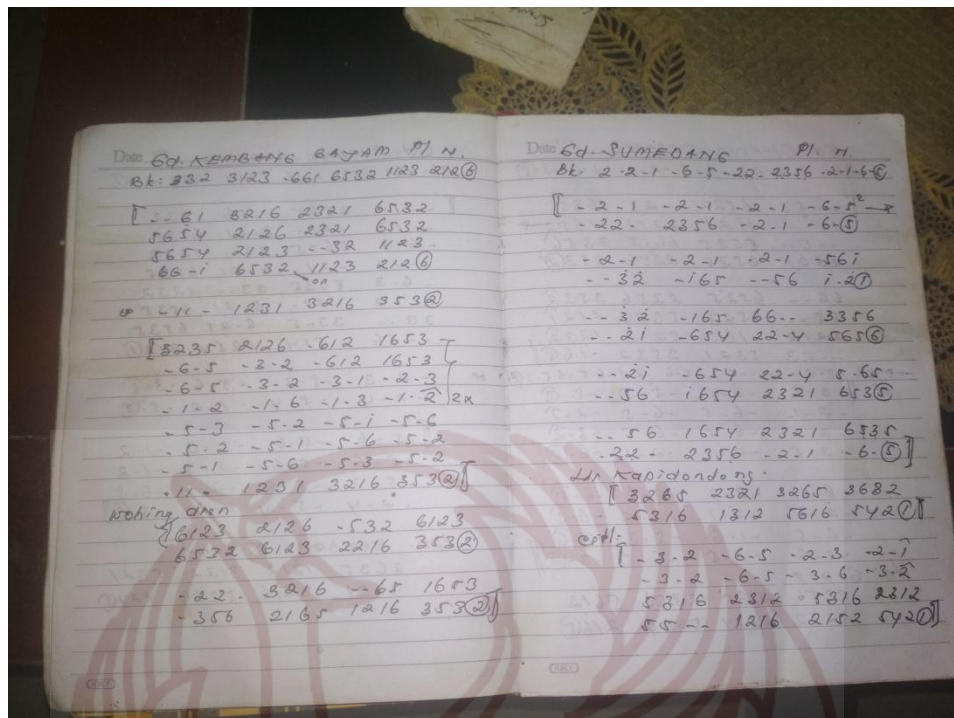 Date Gd. KEMBANG BAYAM Pl. N.
Bk: 332 3123 -661 6532 1123 212⑥
[ - - 61 3216 2321 6532
5654 2126 2321 6532
5654 2123 - - 32 1123
66 - i 6532 1123 212⑥
on
- 1231 3216 353②
[3235 2126 -612 1653
- 6 - 5 - 3 - 2 - 612 1653
- 6 - 5 - 3 - 2 - 3 - 1 - 2 - 3
- 1 - 2 - 1 - 6 - 1 - 3 - 1 - 2 2x
- 5 - 3 - 5 - 2 - 5 - i - 5 - 6
- 5 - 2 - 5 - 1 - 5 - 6 - 5 - 2
- 5 - 1 - 5 - 6 - 5 - 3 - 5 - 2
- 11 - 1231 3216 353②]
Wohing aren
[6123 2126 -532 6123
6532 6123 2216 353②
- 22 - 3216 - - 65 1653
- 356 2165 1216 353②]
KKY
Date Gd. SUMEDANG Pl. N.
Bk. 2 - 2 - 1 - 6 - 5 - 22 - 2356 - 2 - 1 - 6 - ⑤
[ - 2 - 1 - 2 - 1 - 2 - 1 - 6 - 5
- 22 - 2356 - 2 - 1 - 6 - ⑤
- 2 - 1 - 2 - 1 - 2 - 1 - 56i
- - 3̇2̇ - i65 - - 56 i - 2̇①
- - 3̇2̇ - 165 66 - - 3356
- - 2̇i - 654 22 - 4 565⑥
- - 2̇i - 654 22 - 4 5 - 65
- - 56 i654 2321 653⑤
- - 56 1654 2321 6535
- 22 - 2356 - 2 - 1 - 6 - ⑤]
Lr Kapidondong.
[ 3265 2321 3265 3632
5316 1312 5616 542①]
[ - 3 - 2 - 6 - 5 - 2 - 3 - 2 - 1
- 3 - 2 - 6 - 5 - 3 - 6 - 3 - 2
5316 2312 5316 2312
55 - - 1216 2152 542①]
KKY